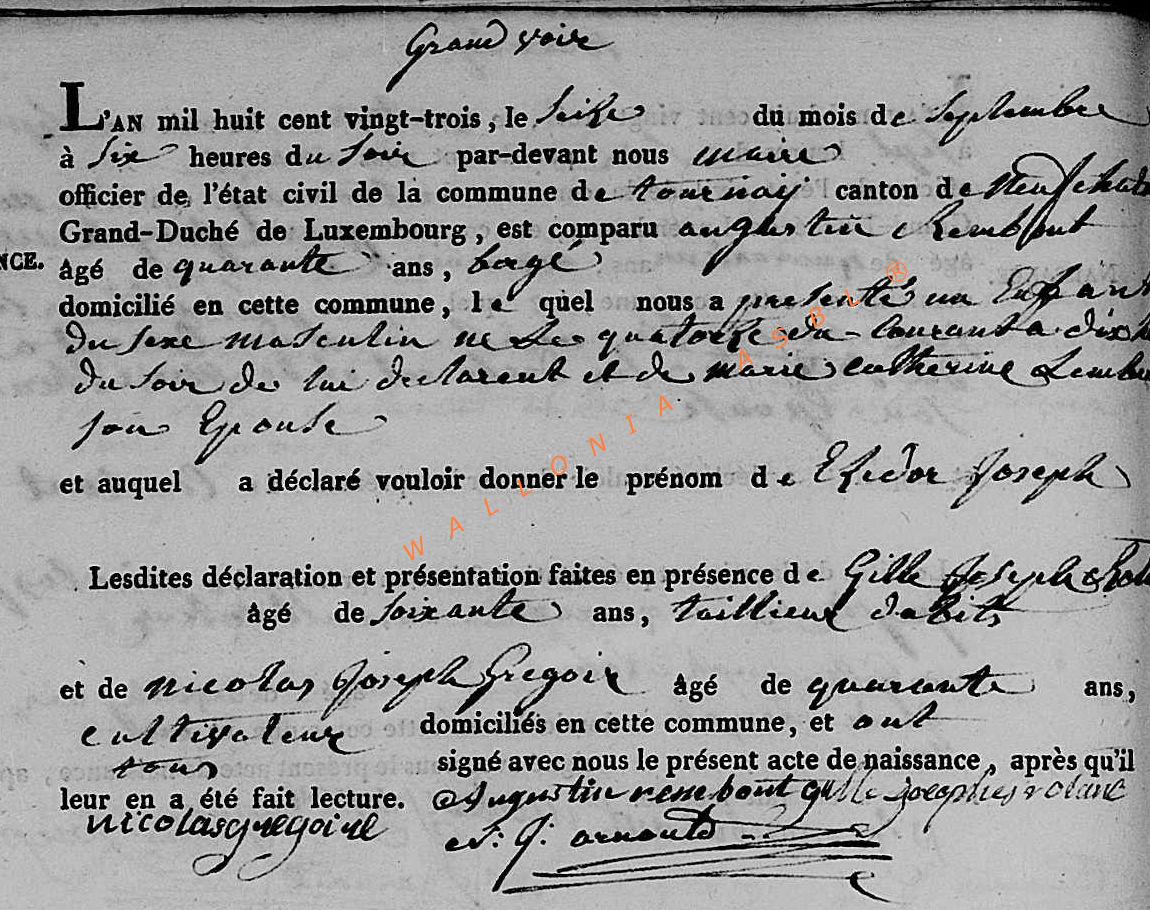 Grand voir
L'AN mil huit cent vingt-trois, le seize du mois de septembre
à six heures du soir par-devant nous maire
officier de l'état civil de la commune de tournay canton de
Grand-Duché de Luxembourg, est comparu augustin Rembout
NCE.
âgé de quarante ans, bergé
domicilié en cette commune, le quel nous a presenté un Enfant
du sexe masculin ne Le quatorze du Courant a
du soir de lui declarent et de marie catherine
son Epouse
et auquel a déclaré vouloir donner le prénom de Esidor Joseph
Lesdites déclaration et présentation faites en présence de Gille Joseph
âgé de soixante ans, taillieur dabits
et de nicolas Joseph Gregoir âgé de quarante ans,
cultivateur domiciliés en cette commune, et ont
tous signé avec nous le présent acte de naissance, après qu'il
leur en a été fait lecture. Augustin rembout gille Josephe
nicolas gregoire
J: arnould
WALLONIA ASBL ®